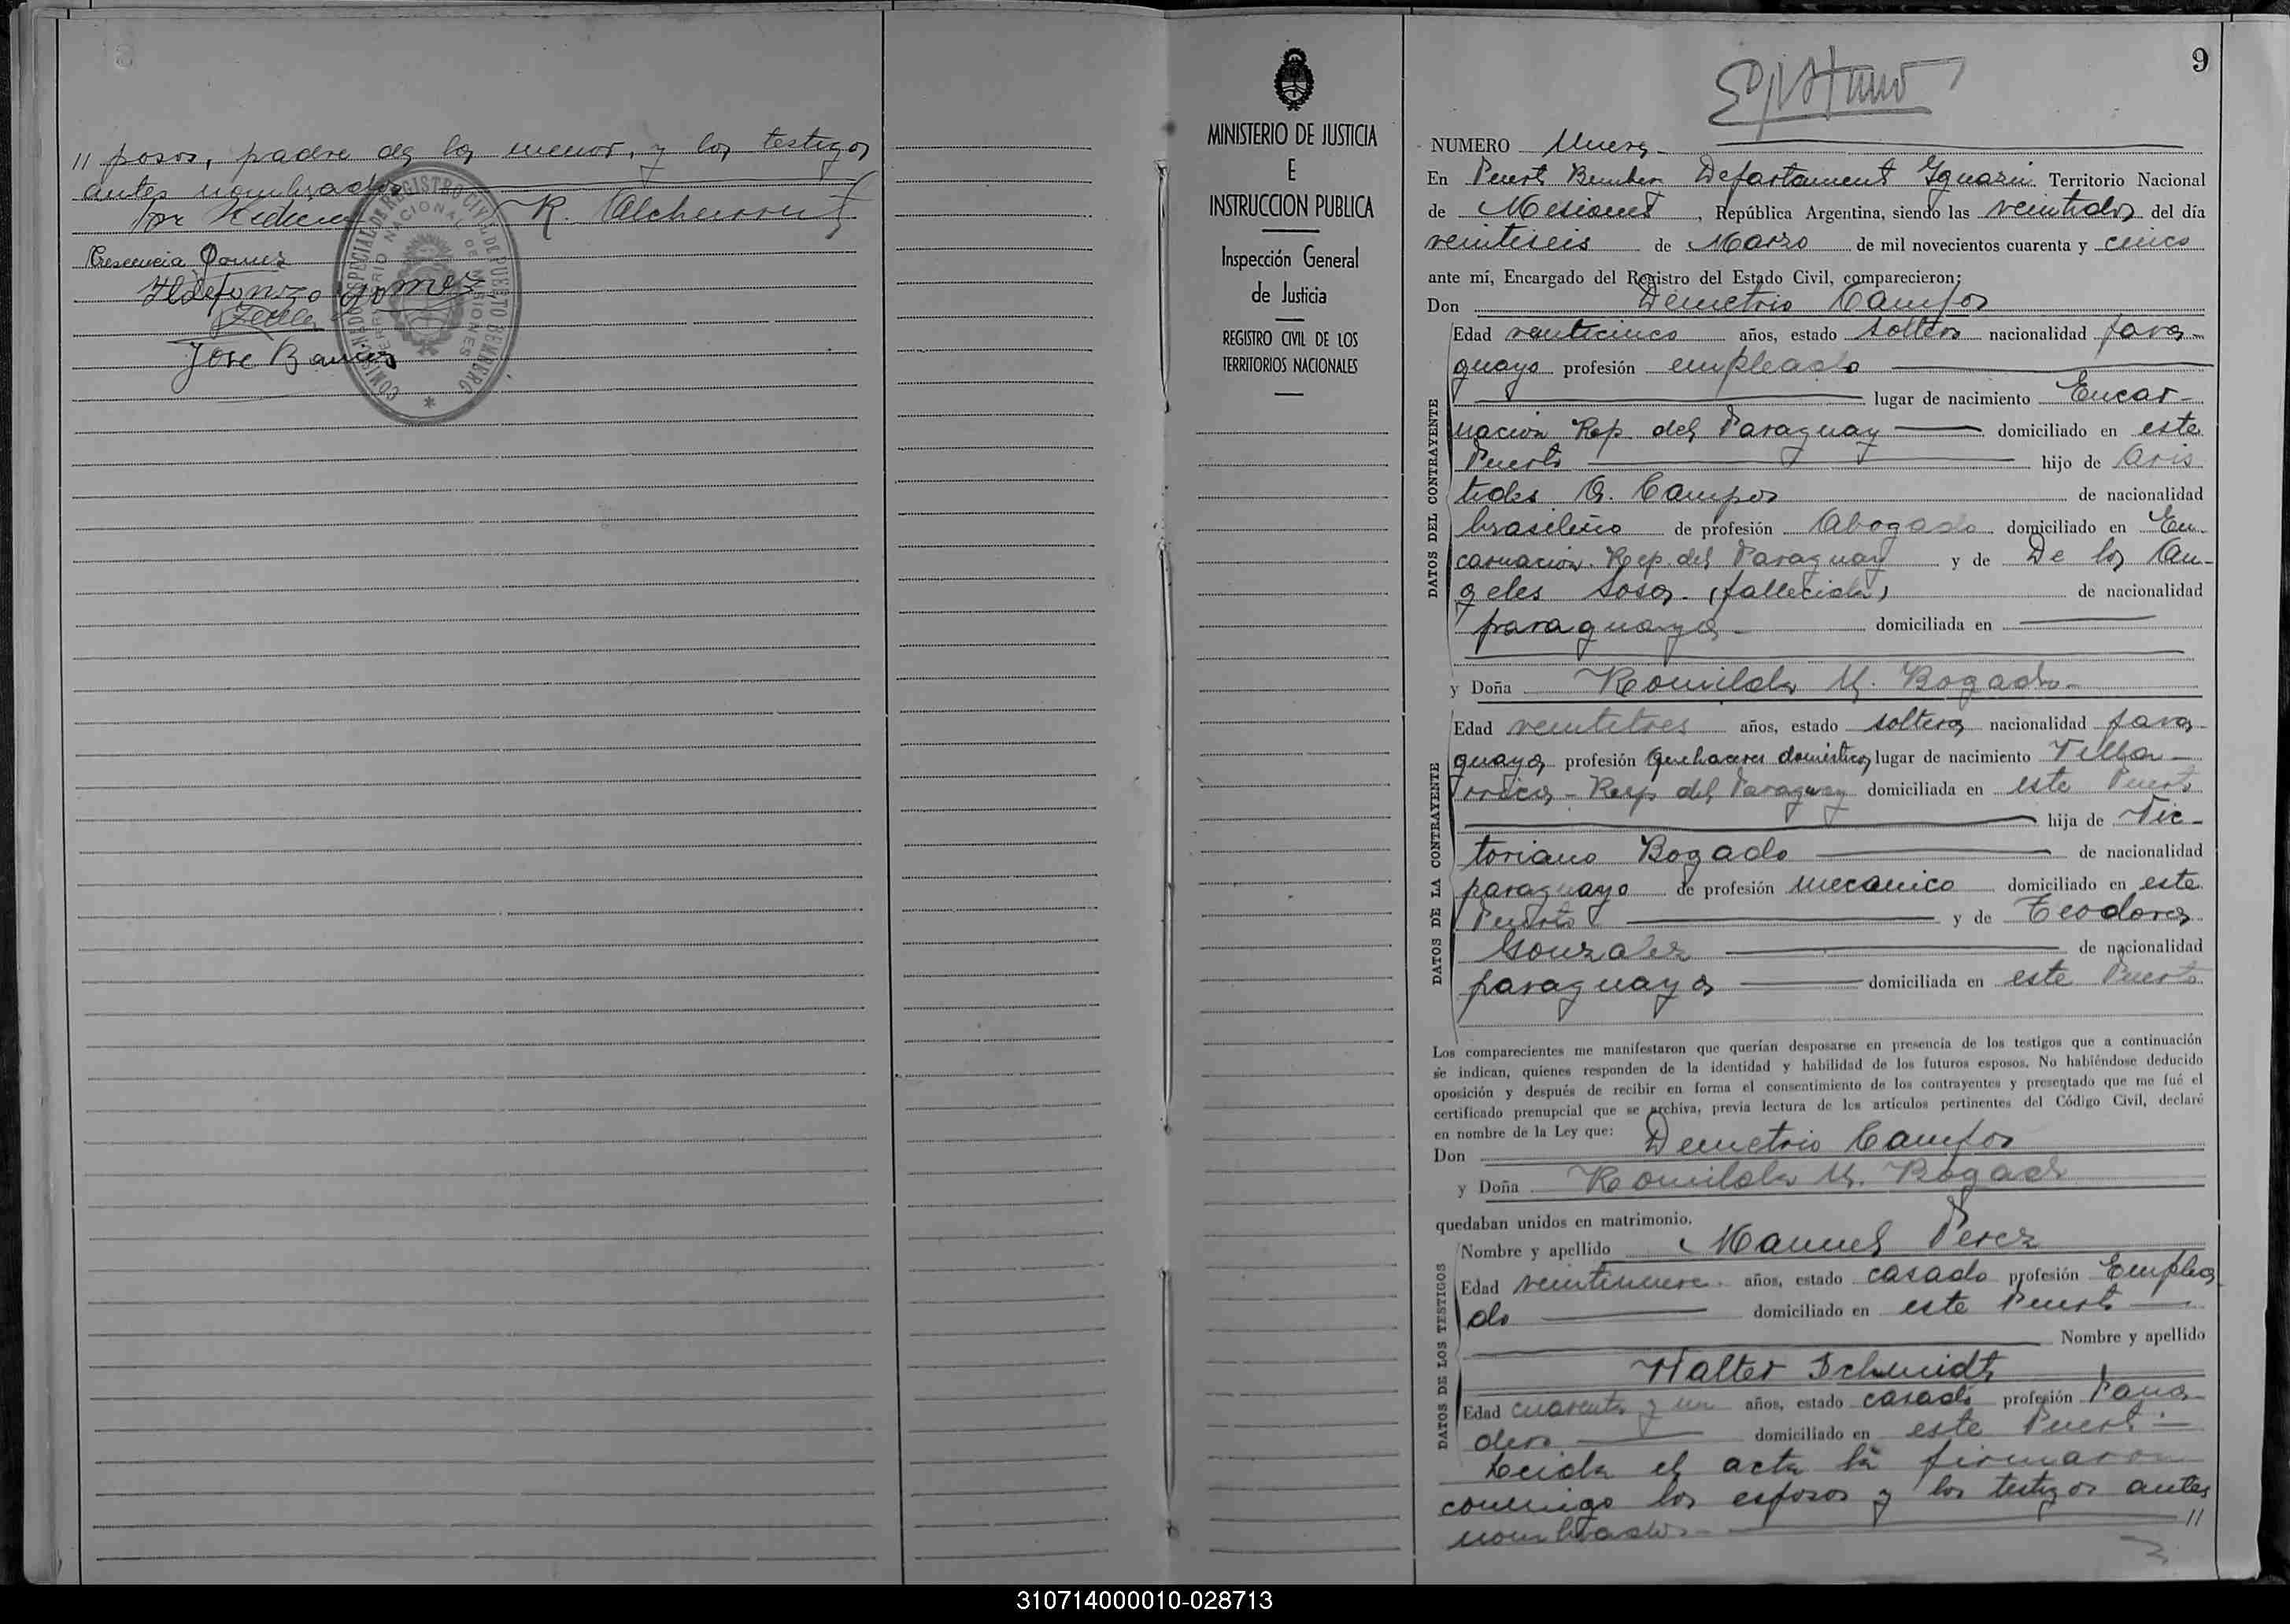 // posos, padre de la menor, y los testigos
antes nombrados
Crescencia Gomez
Ildefonzo Gomez
Jose Ramirez
COMISION ESPECIAL DE REGISTRO CIVIL DE PUERTO BEMBERG
TERRITORIO NACIONAL DE MISIONES
MINISTERIO DE JUSTICIA
E
INSTRUCCION PUBLICA
Inspección General
de Justicia
REGISTRO CIVIL DE LOS
TERRITORIOS NACIONALES
9
NUMERO Nueve
En Puerto Bemberg Departamento Iguazú Territorio Nacional
de Misiones, República Argentina, siendo las veintidos del día
veintiseis de Marzo de mil novecientos cuarenta y cinco
ante mí, Encargado del Registro del Estado Civil, comparecieron:
Don Demetrio Campos
DATOS DEL CONTRAYENTE
Edad veinticinco años, estado soltero nacionalidad para-
guayo profesión empleado
lugar de nacimiento Encar-
nacion Rep. del Paraguay domiciliado en este
Puerto hijo de Aris
tides A. Campos de nacionalidad
brasileño de profesión Abogado domiciliado en En
carnacion. Rep. del Paraguay y de De los An-
geles Sosa. (fallecida) de nacionalidad
paraguaya domiciliada en
y Doña Romilda M. Bogado
DATOS DE LA CONTRAYENTE
Edad veintitres años, estado soltera nacionalidad para
guaya profesión Quehaceres domésticos lugar de nacimiento Villa-
rrica - Rep del Paraguay domiciliada en este Puerto
hija de Vic-
toriano Bogado de nacionalidad
paraguayo de profesión mecanico domiciliado en este
Puerto y de Teodora
Gonzalez de nacionalidad
paraguaya domiciliada en este Puerto
Los comparecientes me manifestaron que querían desposarse en presencia de los testigos que a continuación
se indican, quienes responden de la identidad y habilidad de los futuros esposos. No habiéndose deducido
oposición y después de recibir en forma el consentimiento de los contrayentes y presentado que me fué el
certificado prenupcial que se archiva, previa lectura de los artículos pertinentes del Código Civil, declaré
en nombre de la Ley que:
Don Demetrio Campos
y Doña Romilda M. Bogado
quedaban unidos en matrimonio.
DATOS DE LOS TESTIGOS
Nombre y apellido Manuel Perez
Edad veintinueve años, estado casado profesión Emplea
do domiciliado en este Puerto
Nombre y apellido
Walter Schmidt
Edad cuarenta y un años, estado casado profesión Pana-
dero domiciliado en este Puerto
Leida el acta la firmaron
conmigo los esposos y los testigos antes
nombrados. //
310714000010-028713